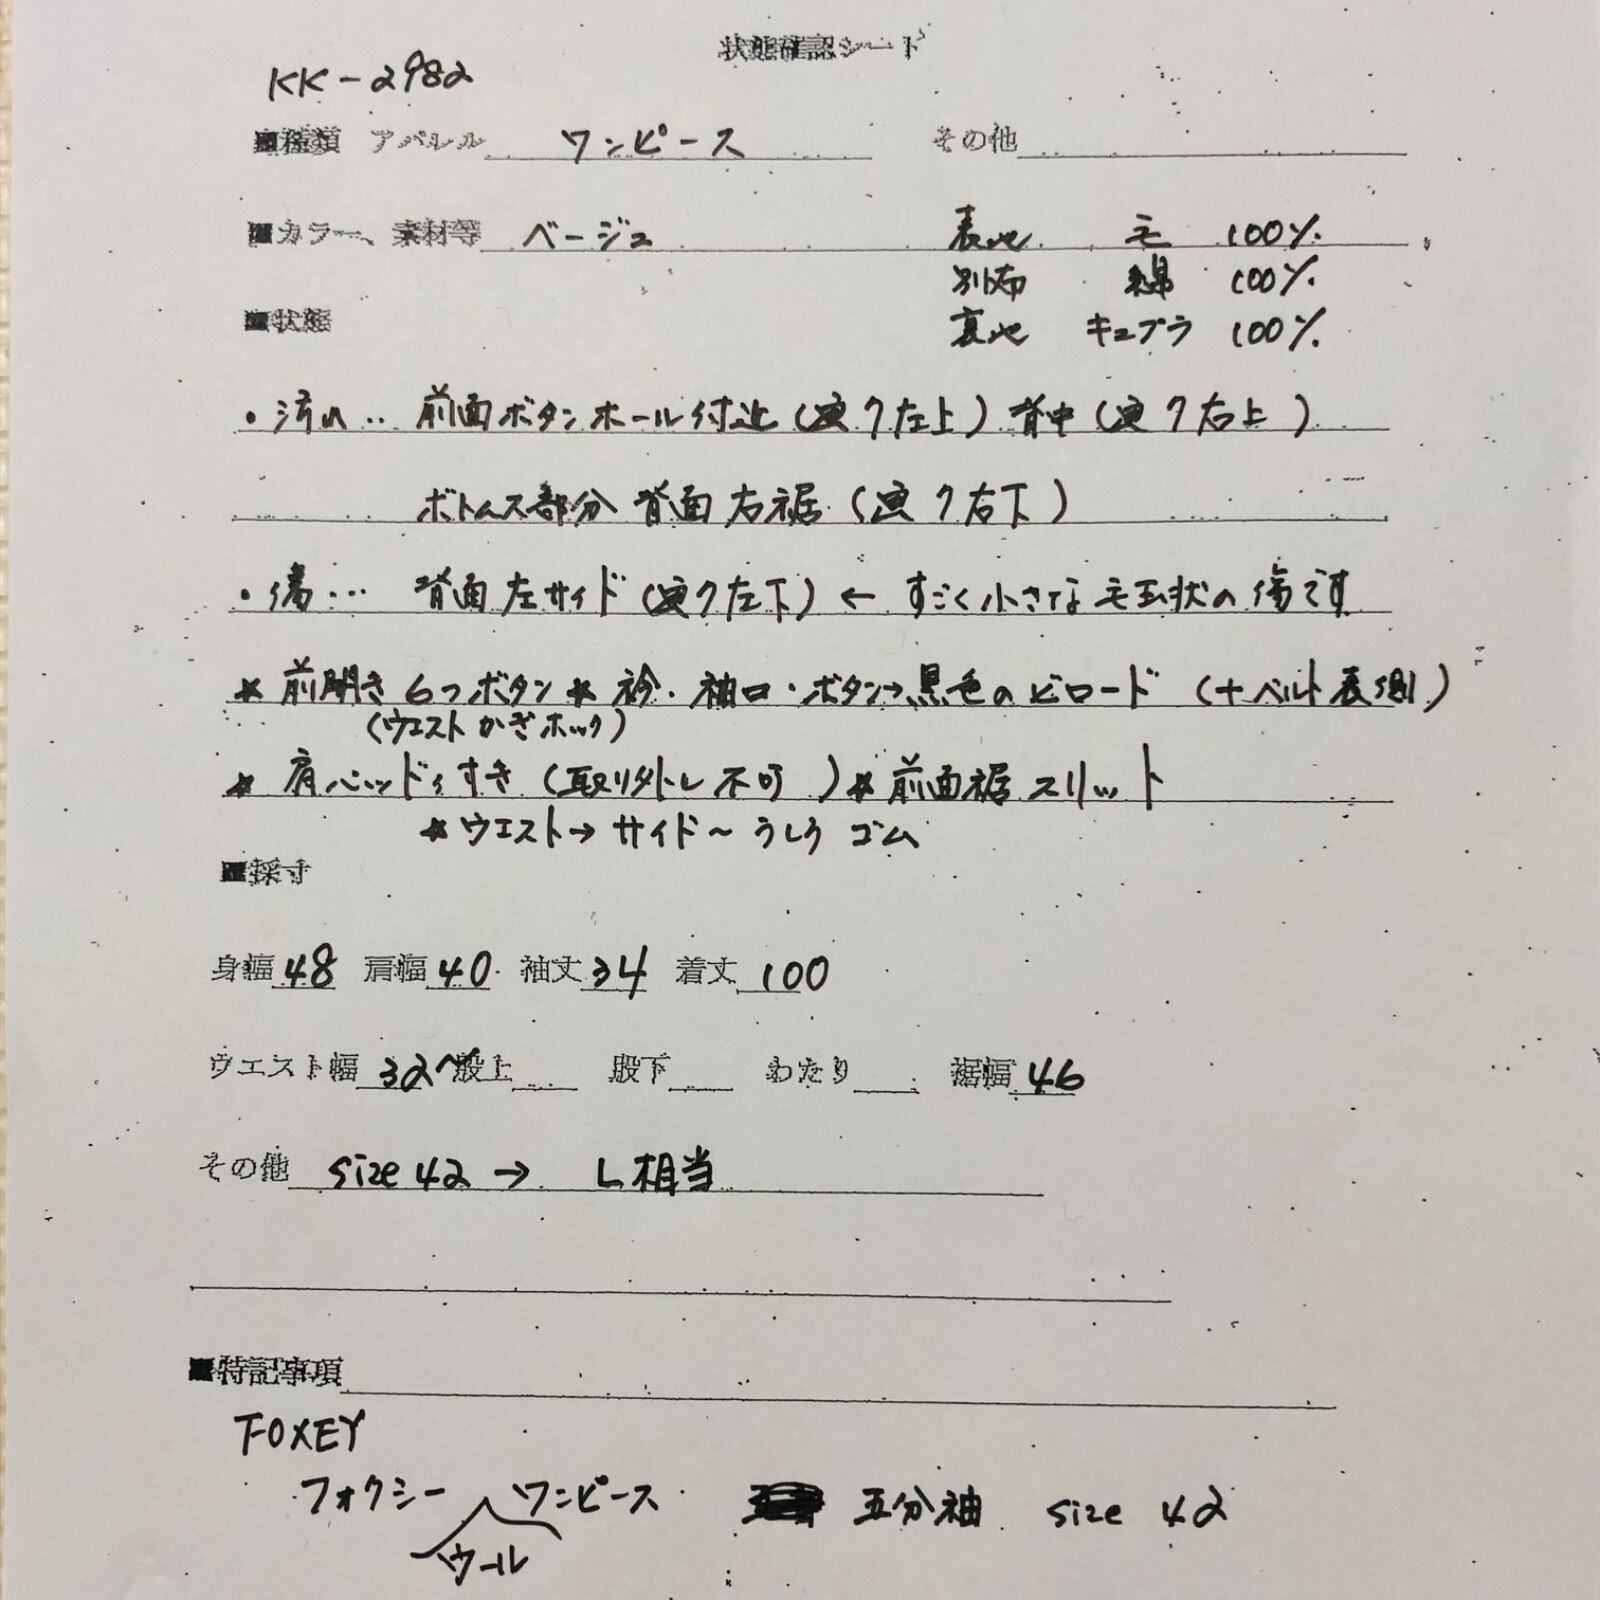 状態確認シート
KK-2982
■種類 アパレル ワンピース その他
■カラー、素材等 ベージュ 表地 毛 100%
別布 綿 100%
■状態 裏地 キュプラ 100%
・汚れ… 前面ボタンホール付近(画7左上) 背中(画7右上)
ボトムス部分 背面右裾(画7右下)
・傷… 背面左サイド(画7左下) ← すごく小さな毛玉状の傷です
* 前開き6つボタン * 衿・袖口・ボタン→黒色のビロード (+ベルト表側)
(ウエストかぎホック)
* 肩パッドうすき(取り外し不可) * 前面裾スリット
* ウエスト→サイド~うしろ ゴム
■採寸
身幅 48 肩幅 40 袖丈 34 着丈 100
ウエスト幅 32~ 股上 股下 わたり 裾幅 46
その他 size 42 → L相当
■特記事項
FOXEY
フォクシー ワンピース 五分袖 size 42
ウール